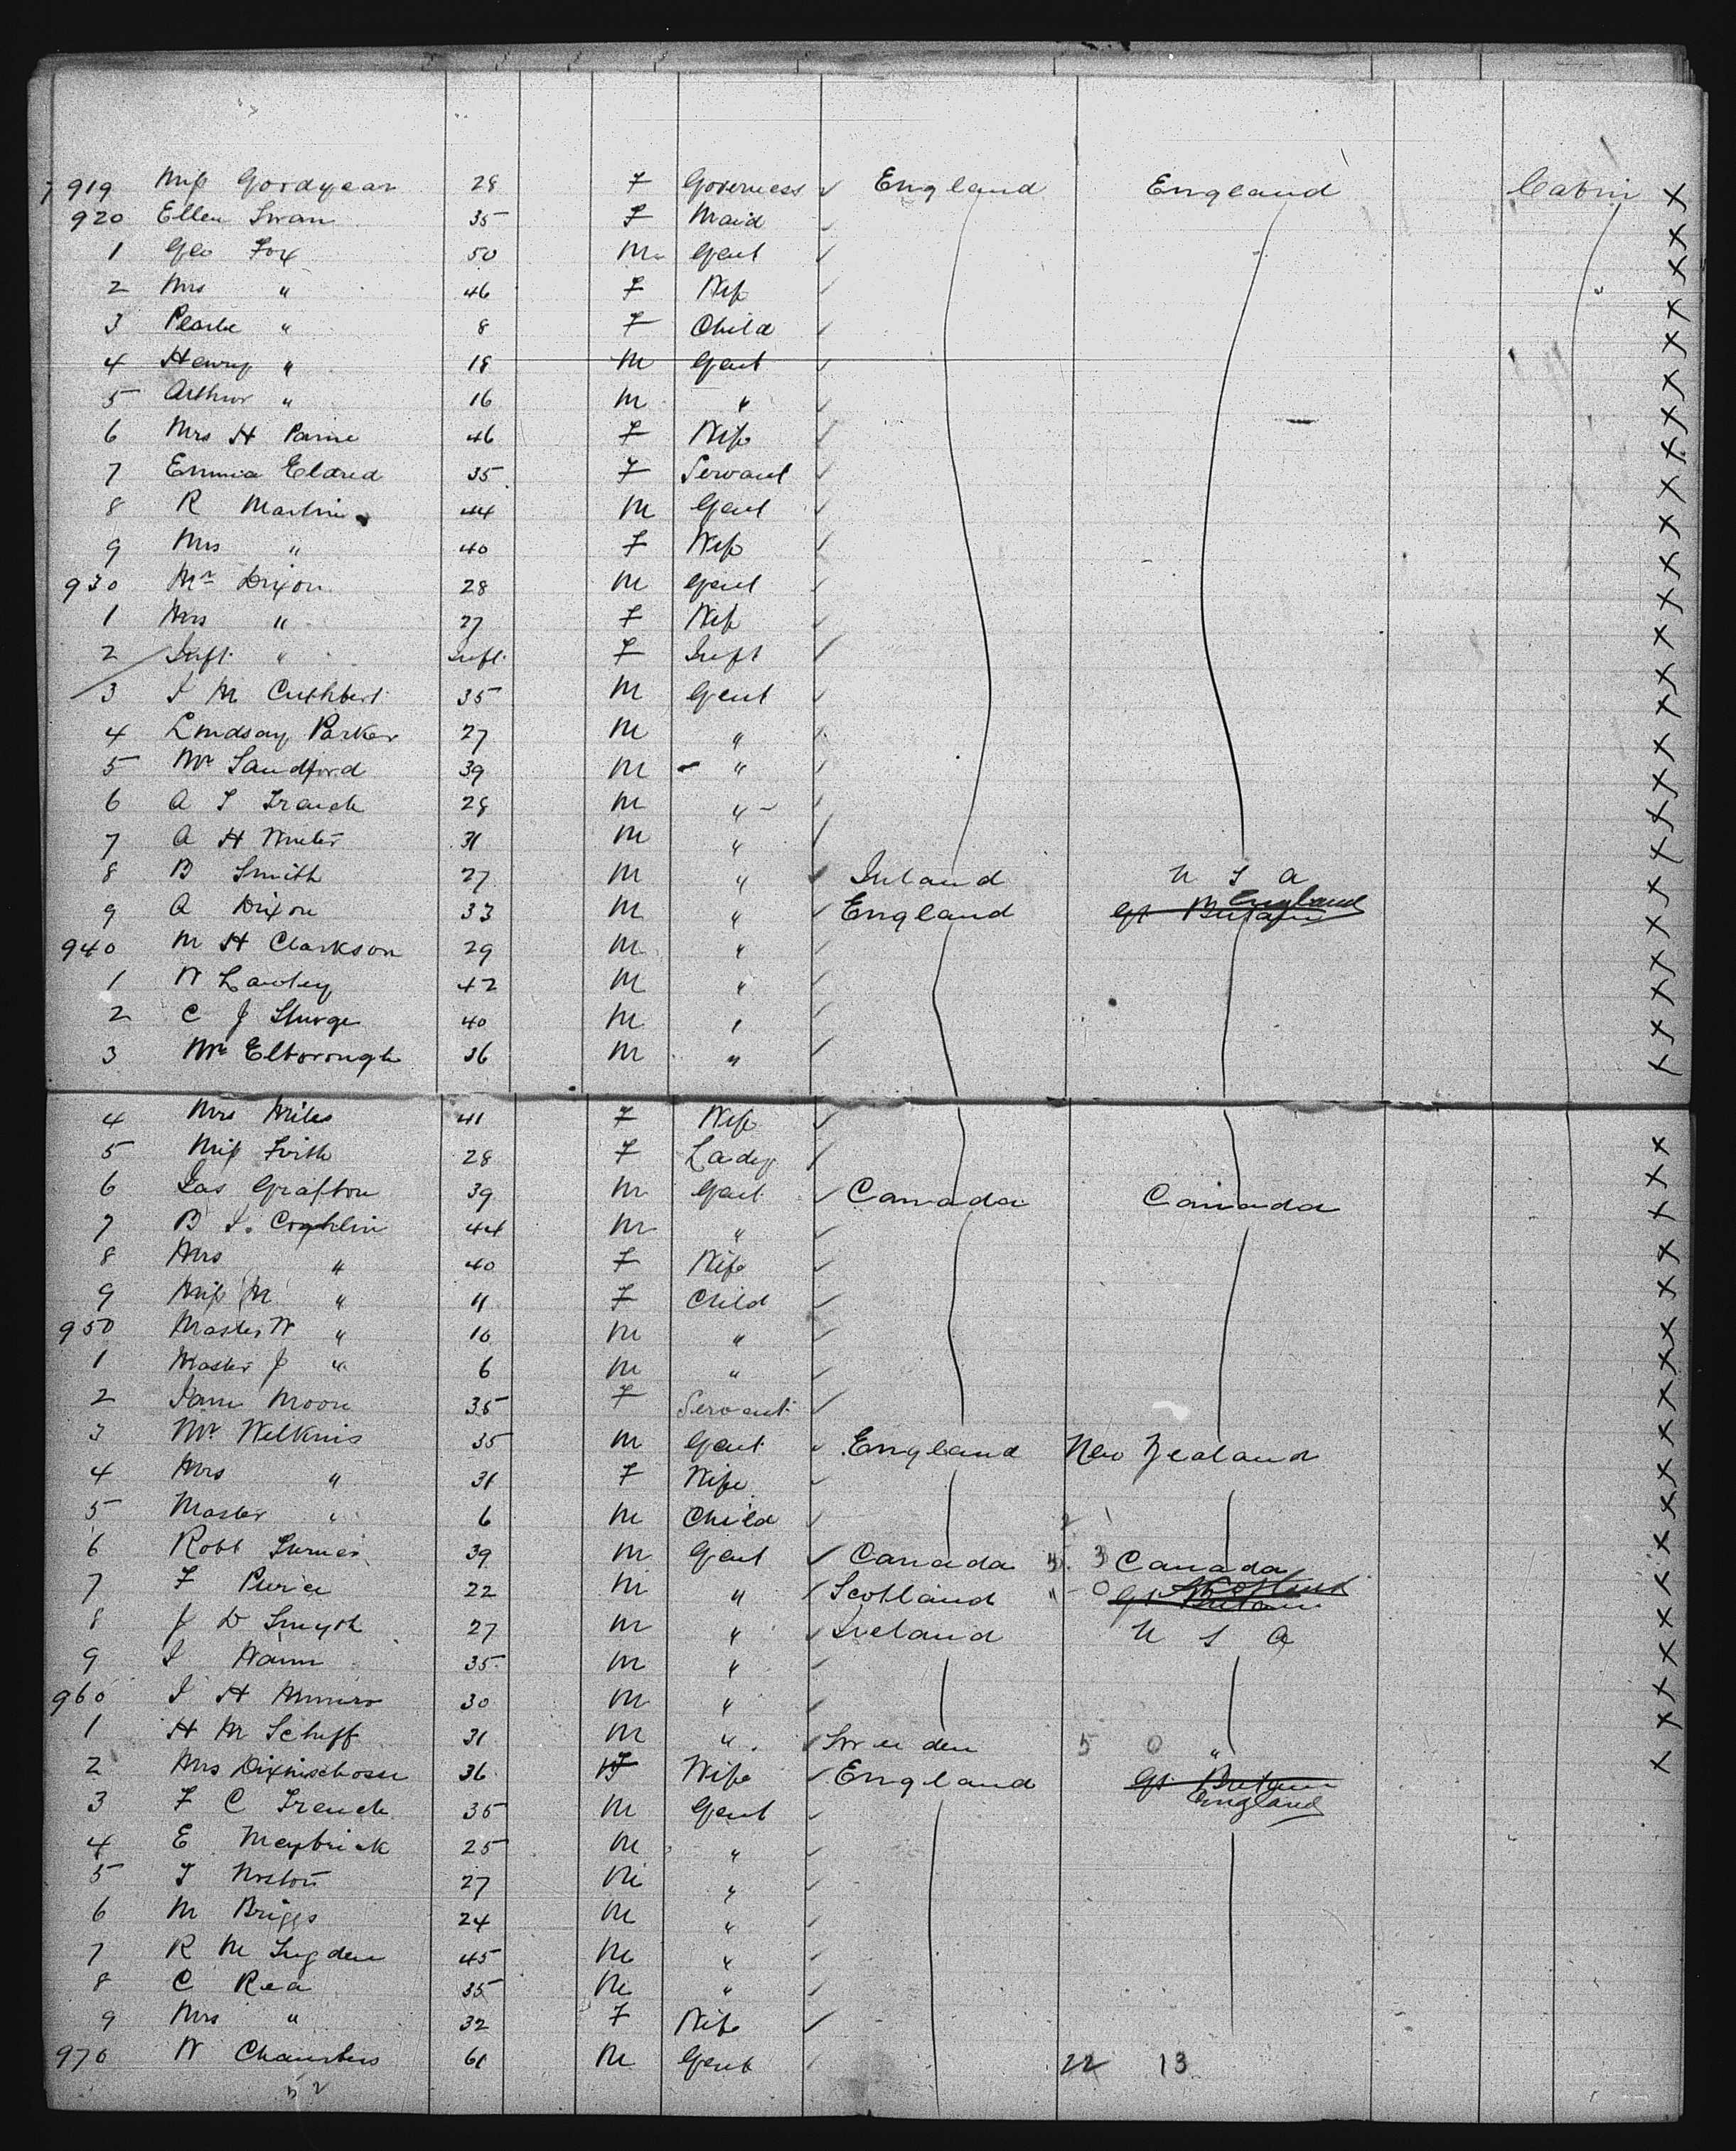 919 Miss Goodyear 28 F Governess ✓ England England Cabin X
920 Ellen Swan 35 F Maid ✓ X
1 Geo Fox 50 M Gent ✓ X
2 Mrs " 46 F Wife ✓ " X
3 " 8 F Child ✓ X
4 Henry " 18 M Gent ✓ X
5 Arthur " 16 M " ✓ X
6 Mrs H Paine 46 F Wife ✓ X
7 Emma Eldred 35 F Servant ✓ X
8 R Martin 44 M Gent ✓ X
9 Mrs " 40 F Wife ✓ X
930 Mr Dixon 28 M Gent ✓ X
1 Mrs " 27 F Wife ✓ X
2 Inft " Inft F Inft ✓ X
3 M Cuthbert 35 M Gent ✓ X
4 Lindsay Parker 27 M " ✓ X
5 Mr Sandford 39 M " ✓ X
6 A 28 M " ✓ X
7 A H 31 M " ✓ X
8 B Smith 27 M " ✓ Ireland U S A X
9 A Dixon 33 M " ✓ England Gt Britain England X
940 M H Clarkson 29 M " ✓ X
1 W Lawley 42 M " ✓ X
2 C J Sturge 40 M " ✓ X
3 Mr Elborough 36 M " ✓ X
4 Mrs Miles 41 F Wife ✓
5 Miss Frith 28 F Lady ✓ X
6 Jas Grafton 39 M Gent ✓ Canada Canada X
7 B Coghlin 44 M " ✓ X
8 Mrs " 40 F Wife ✓ X
9 Miss M " 11 F Child ✓ X
950 Master W " 10 M " ✓ X
1 Master J " 6 M " ✓ X
2 Jane Moore 35 F Servant ✓ X
3 Mr Wilkins 35 M Gent ✓ England New Zealand X
4 Mrs " 31 F Wife ✓ X
5 Master " 6 M Child ✓ X
6 Robt 39 M Gent ✓ Canada 3 Canada X
7 F 22 M " ✓ Scotland 0 Gt Britain Scotland X
8 J D Smyth 27 M " ✓ Ireland U S A X
9 35 M " ✓ X
960 H Munro 30 M " ✓ X
1 H M Schiff 31 M " ✓ Sweden 5 0 " X
2 Mrs 36 F Wife ✓ England Gt Britain England X
3 F C French 35 M Gent ✓
4 E Maybrick 25 M " ✓
5 27 M " ✓
6 M Briggs 24 M " ✓
7 R M Sugden 45 M " ✓
8 C Rea 35 M " ✓
9 Mrs " 32 F Wife ✓
970 W Chambers 61 M Gent ✓ 22 13